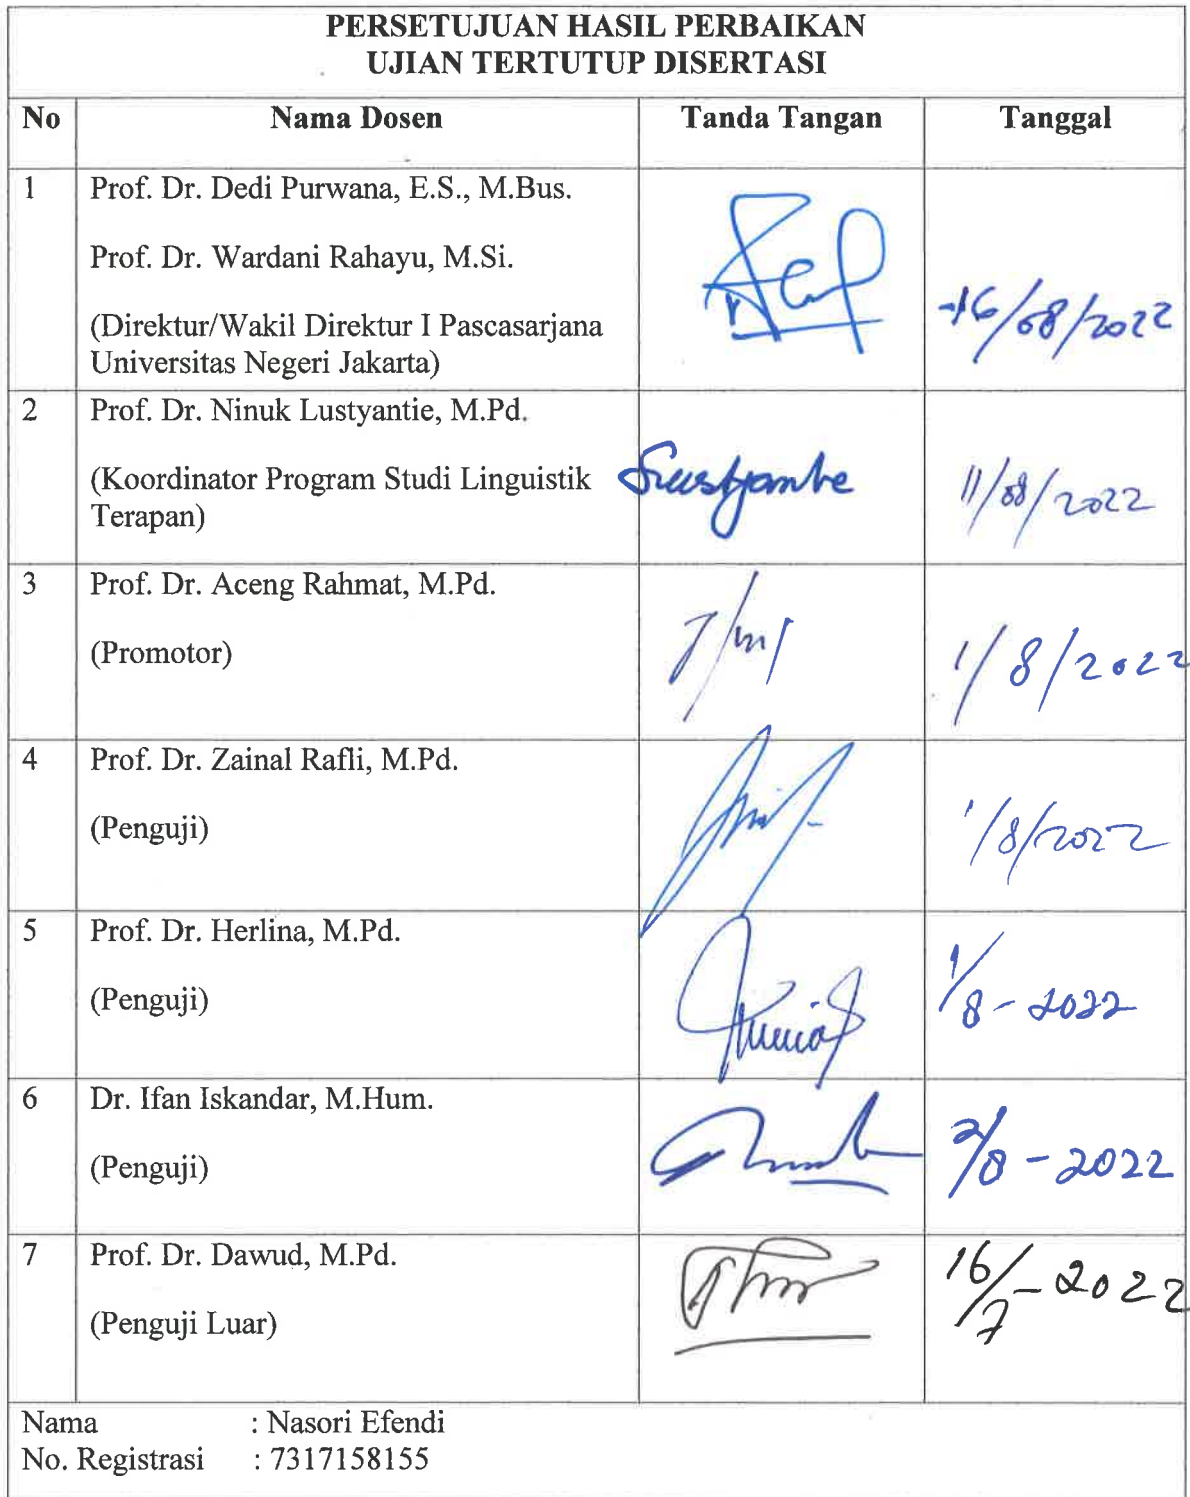 PERSETUJUAN HASIL PERBAIKAN
UJIAN TERTUTUP DISERTASI
No Nama Dosen Tanda Tangan Tanggal
1 Prof. Dr. Dedi Purwana, E.S., M.Bus.
Prof. Dr. Wardani Rahayu, M.Si.
(Direktur/Wakil Direktur I Pascasarjana
Universitas Negeri Jakarta)
16/08/2022
2 Prof. Dr. Ninuk Lustyantie, M.Pd.
(Koordinator Program Studi Linguistik
Terapan)
11/08/2022
3 Prof. Dr. Aceng Rahmat, M.Pd.
(Promotor)
1/8/2022
4 Prof. Dr. Zainal Rafli, M.Pd.
(Penguji)
1/8/2022
5 Prof. Dr. Herlina, M.Pd.
(Penguji)
1/8-2022
6 Dr. Ifan Iskandar, M.Hum.
(Penguji)
2/8-2022
7 Prof. Dr. Dawud, M.Pd.
(Penguji Luar)
16/7-2022
Nama : Nasori Efendi
No. Registrasi : 7317158155